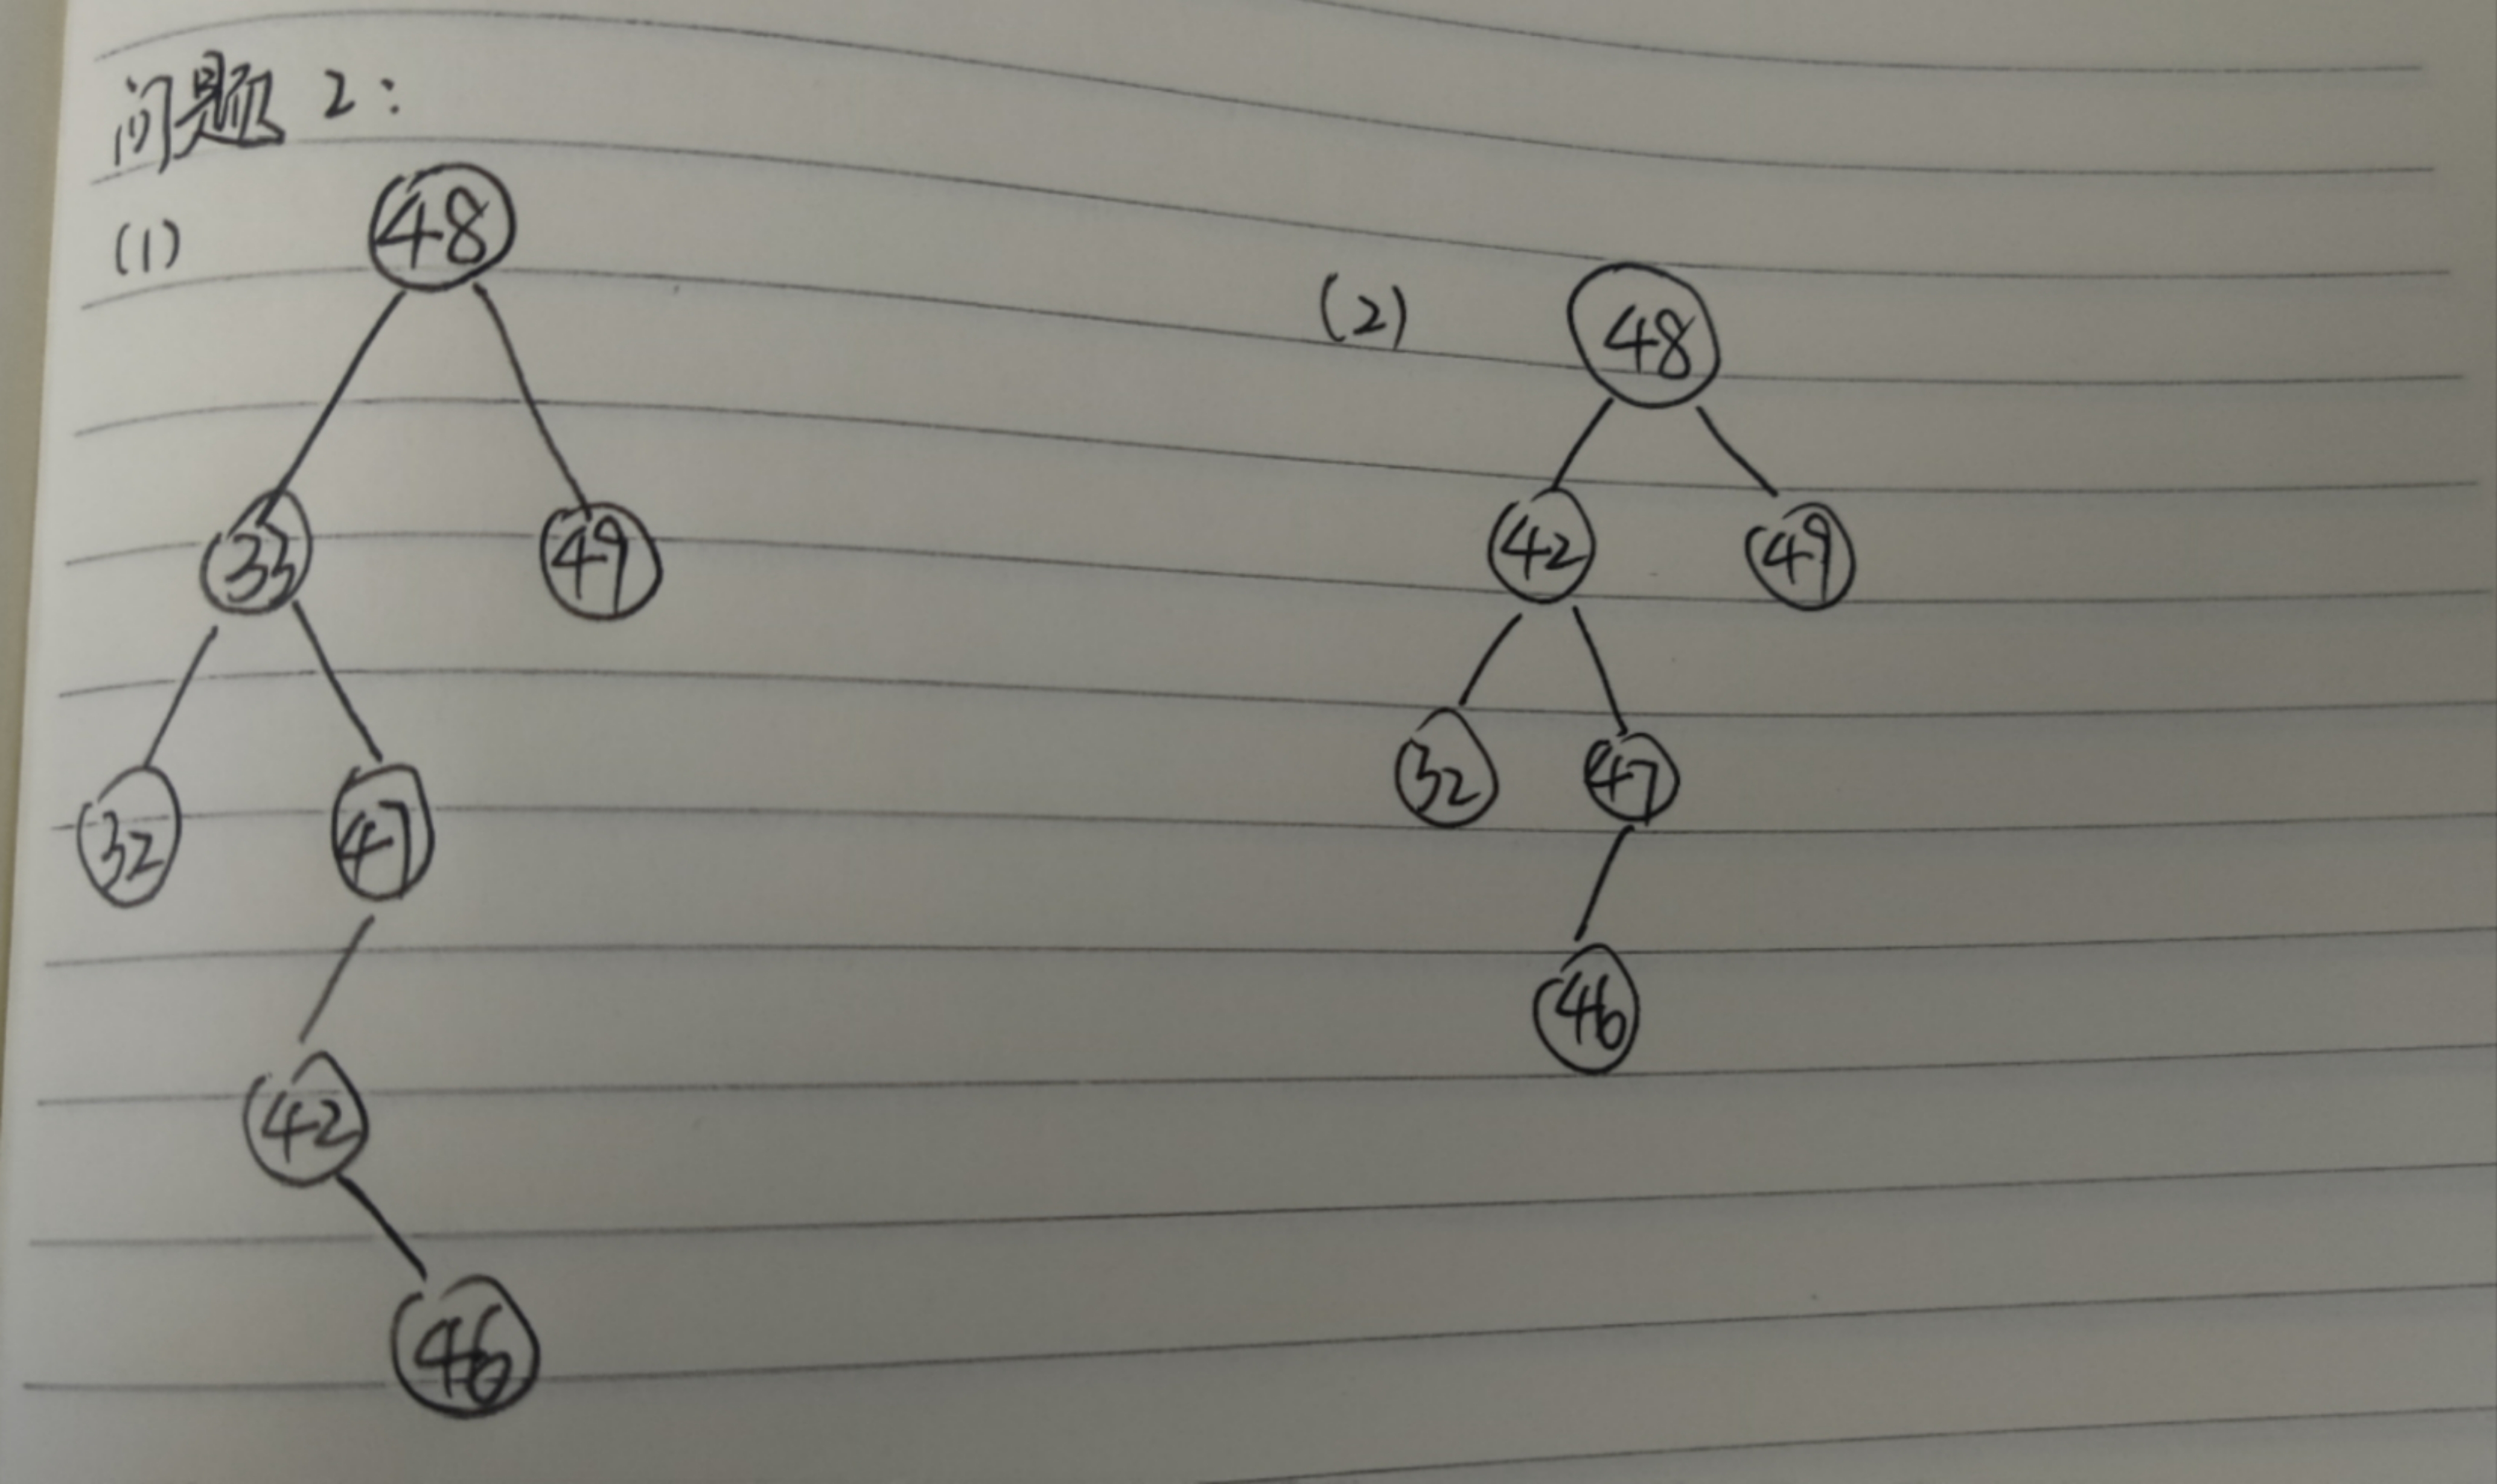 问题 2:
(1)
48
33
49
32
47
42
46
(2)
48
42
49
32
47
46